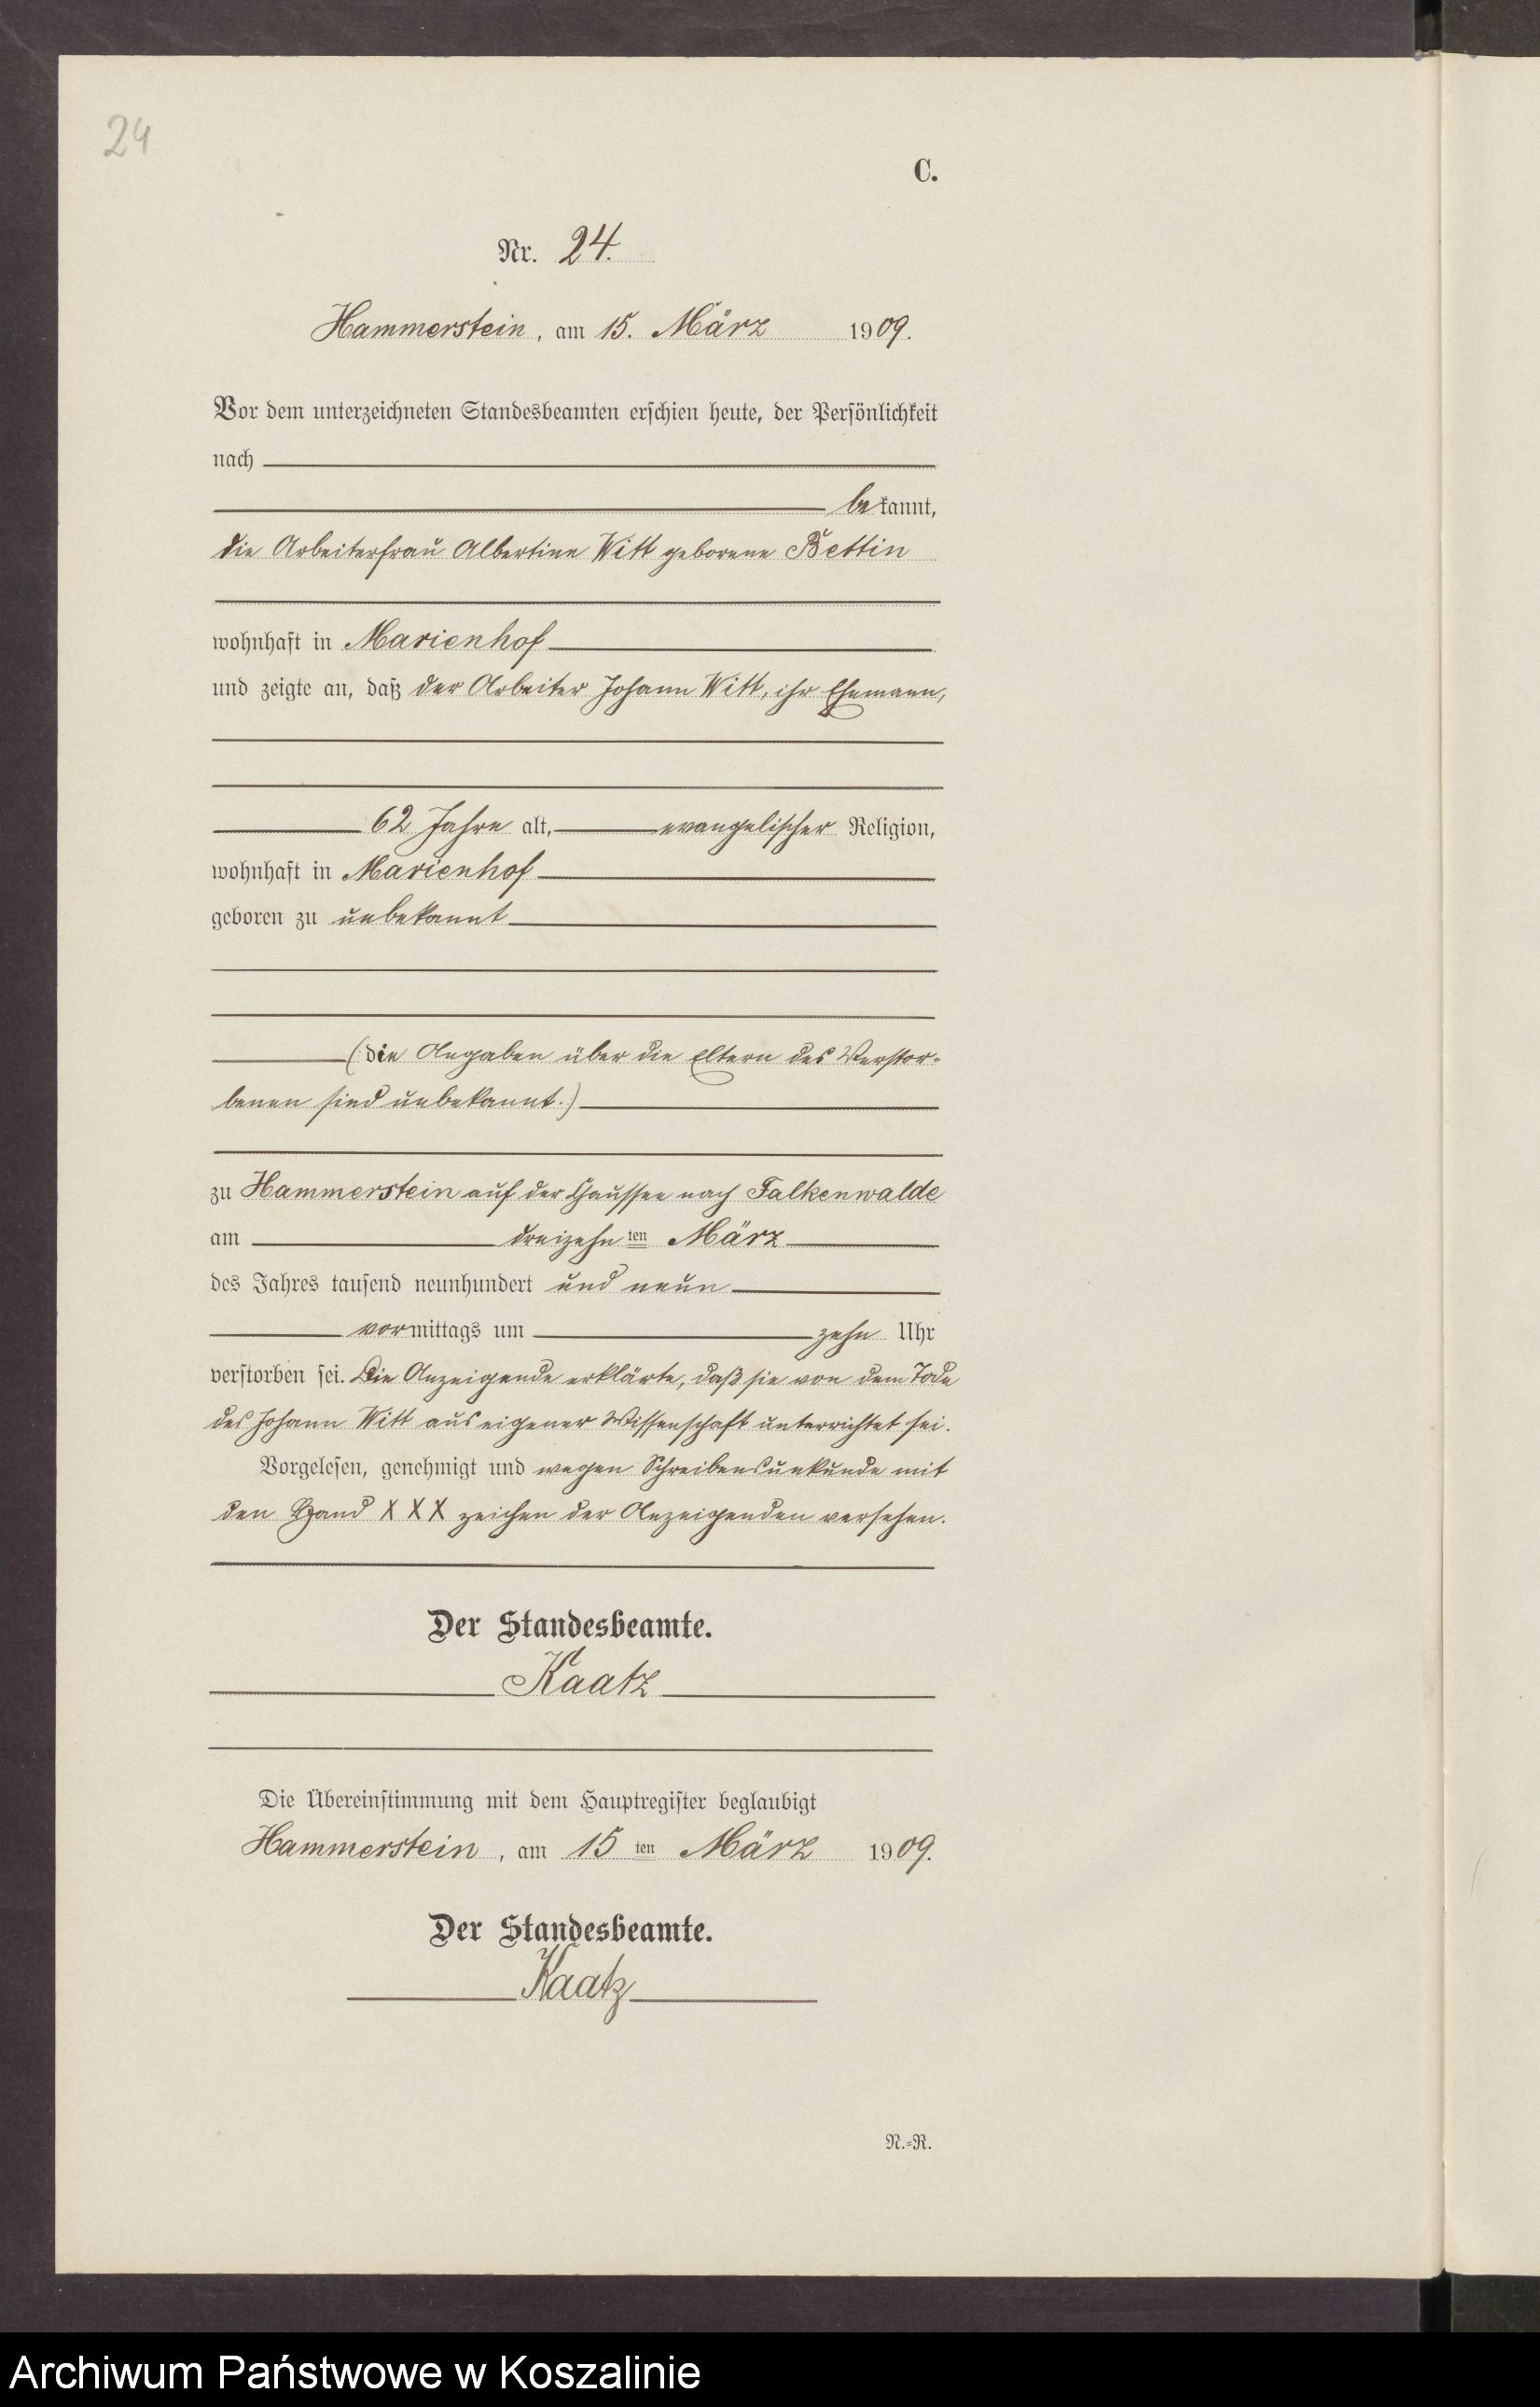 24
C.
Nr. 24.
Hammerstein, am 15. März 1909.
Vor dem unterzeichneten Standesbeamten erschien heute, der Persönlichkeit
nach
bekannt,
die Arbeiterfrau Albertine Witt geborene Bettin
wohnhaft in Marienhof
und zeigte an, daß der Arbeiter Johann Witt, ihr Ehemann,
62 Jahre alt, evangelischer Religion,
wohnhaft in Marienhof
geboren zu unbekannt
(die Angaben über die Eltern des Verstor-
benen sind unbekannt.)
zu Hammerstein auf der Chaussee nach Falkenwalde
am dreizehn ten März
des Jahres tausend neunhundert und neun
vormittags um zehn Uhr
verstorben sei. Die Anzeigende erklärte, daß sie von dem Tode
des Johann Witt aus eigener Wissenschaft unterrichtet sei.
Vorgelesen, genehmigt und wegen Schreibensunkunde mit
den Hand XXX zeichen der Anzeigenden versehen.
Der Standesbeamte.
Kaatz
Die Übereinstimmung mit dem Hauptregister beglaubigt
Hammerstein, am 15 ten März 1909.
Der Standesbeamte.
Kaatz
N.-R.
Archiwum Państwowe w Koszalinie